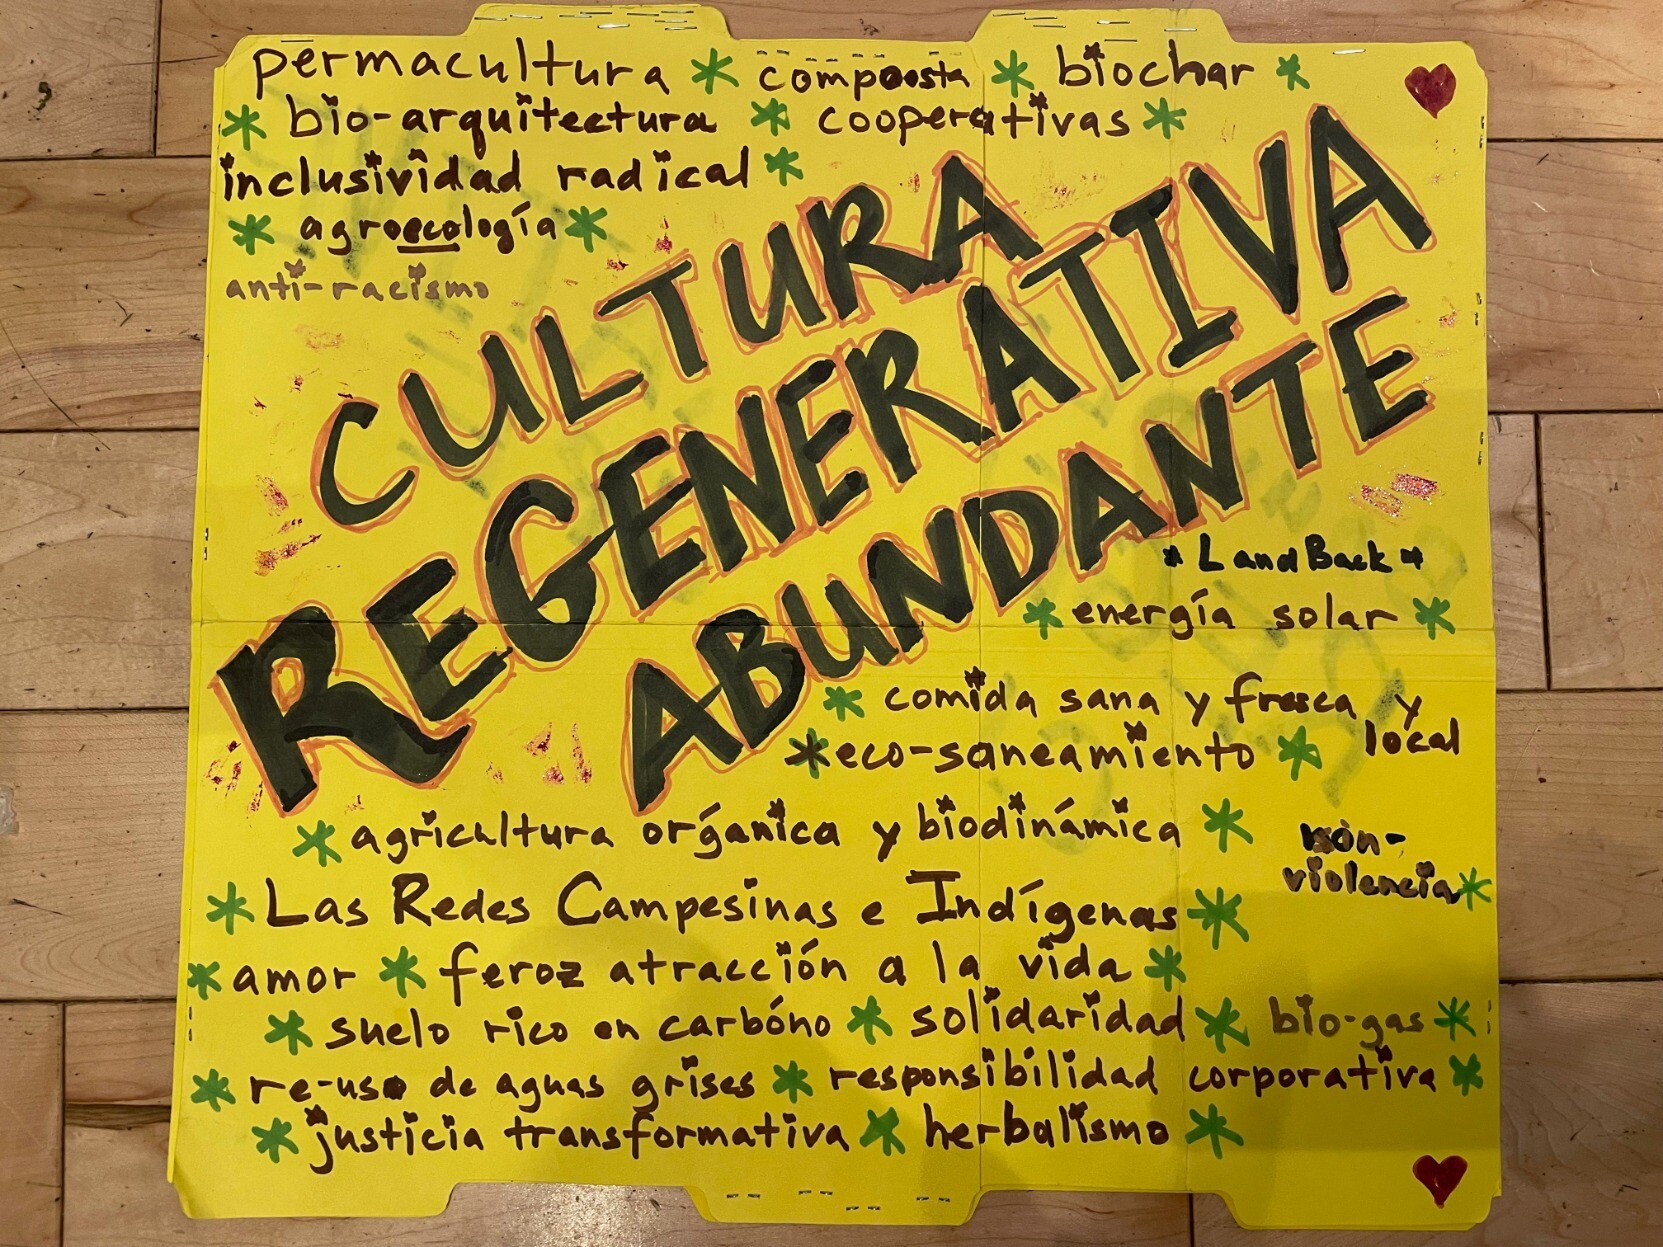 permacultura * composta * biochar *
* bio-arquitectura * cooperativas *
inclusividad radical *
* agroecología *
anti-racismo
CULTURA
REGENERATIVA
ABUNDANTE
* LandBack *
* energía solar *
* comida sana y fresca y
local
* eco-saneamiento *
* agricultura orgánica y biodinámica *
non-
violencia *
* Las Redes Campesinas e Indígenas *
* amor * feroz atracción a la vida *
* suelo rico en carbóno * solidaridad * bio-gas *
* re-uso de aguas grises * responsibilidad corporativa *
* justicia transformativa * herbalismo *